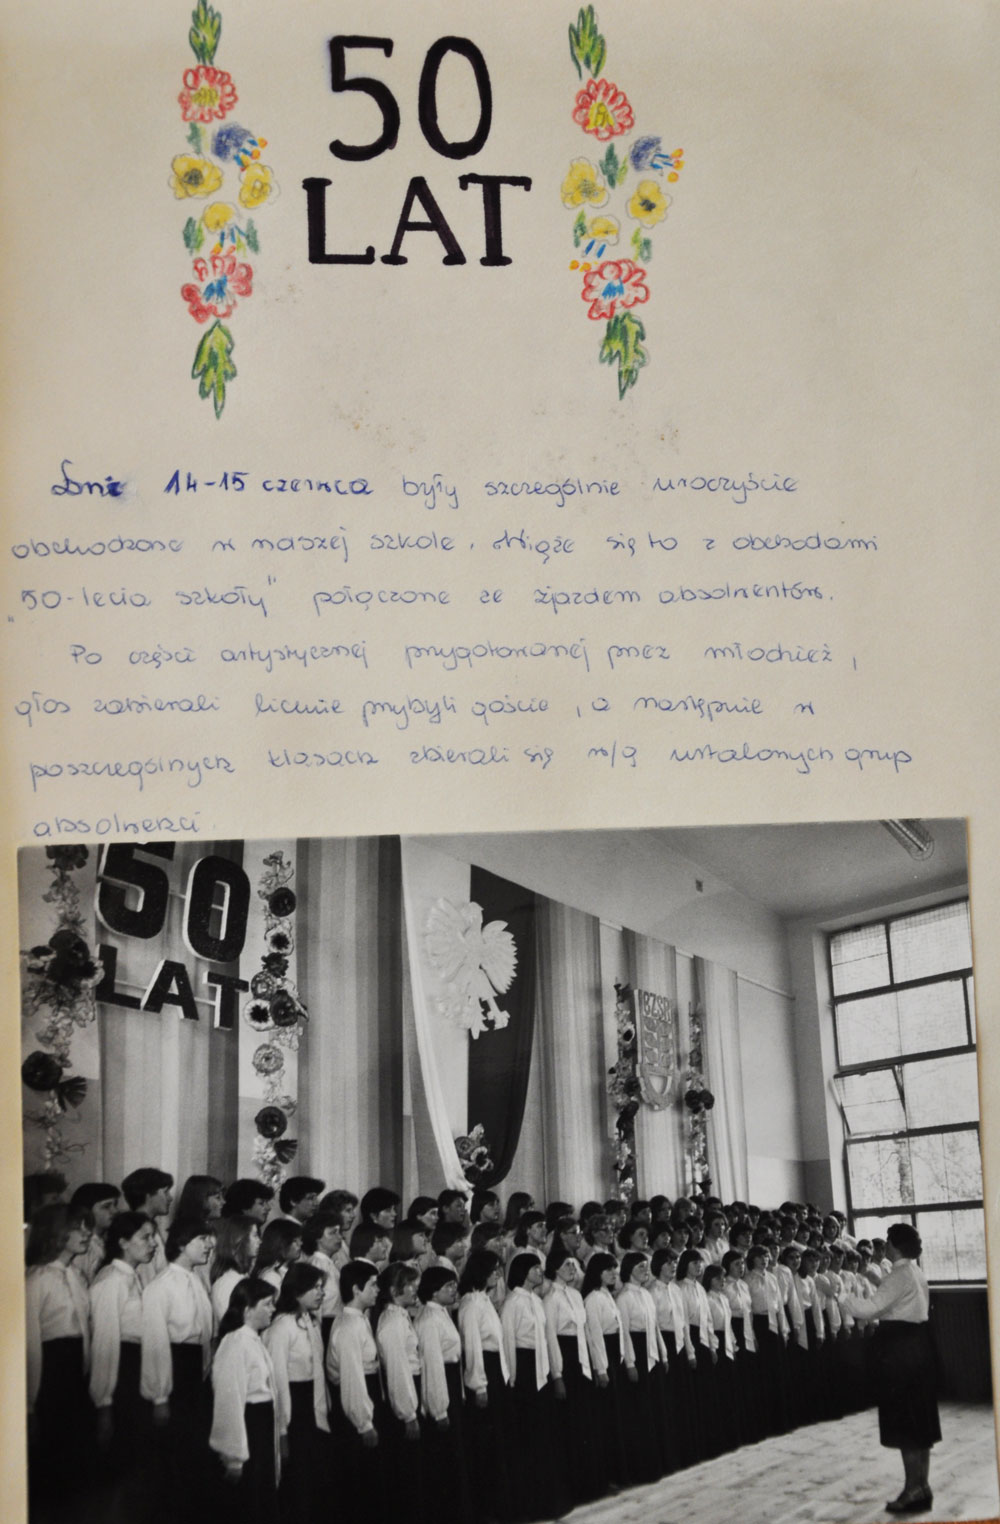 50
LAT
Dni 14-15 czerwca były szczególnie uroczyście
obchodzone w naszej szkole. Wiąże się to z obchodami
"50-lecia szkoły" połączone ze zjazdem absolwentów.
Po części artystycznej przygotowanej przez młodzież,
głos zabierali licznie przybyli goście, a następnie w
poszczególnych klasach zbierali się w/g ustalonych grup
absolwenci.
50
LAT